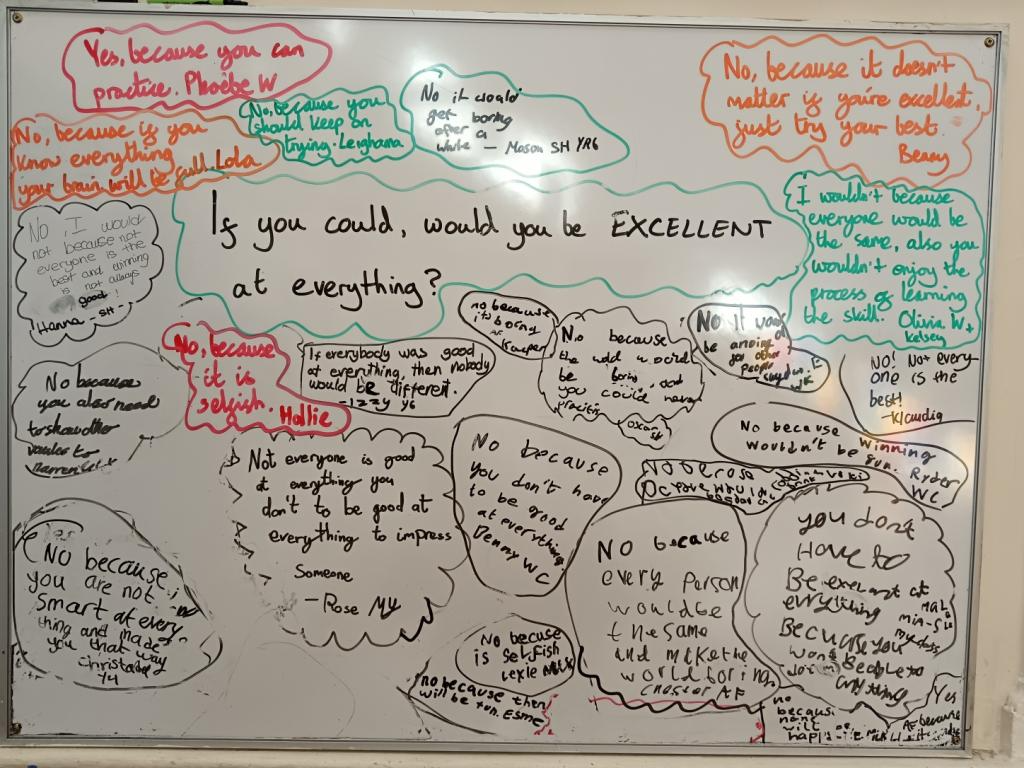 Yes, because you can
practice. Phoebe W
No, because you
should keep on
trying. Leighana
No it would
get boring
after a
while – Mason SH YR6
No, because it doesn't
matter if you're excellent,
just try your best.
Benny
No, because if you
know everything
your brain will be full. Lola
If you could, would you be EXCELLENT
at everything?
I wouldn't because
everyone would be
the same, also you
wouldn't enjoy the
process of learning
the skill. Olivia W +
Kelsey
No, I would
not because not
everyone is the
best and winning
is not always
good!
Hanna SH-
No, because
it is
selfish. Hollie
If everybody was good
at everything, then nobody
would be different.
-izzy y6
no because
its boring
Kacper
No because
the world would
be boring
you could never
No it would
be annoying
for other
people
NO! Not every
one is the
best!
-Klaudia
No because
you also need
to show other
No because winning
wouldn't be fun. Ryder
WC
Not everyone is good
at everything you
don't to be good at
everything to impress
Someone
-Rose MY
No because
you don't have
to be good
at everything.
Denny WC
NO because
you are not
smart at every-
thing and made
you that way
Y4
NO because
every person
would be
the same
and make the
world boring
AF
you dont
Have to
Be at
everything
Because you
No becuse
is selfish
Lexie
no because then
will be fun. Esme
no
becaus
will
Yes
because